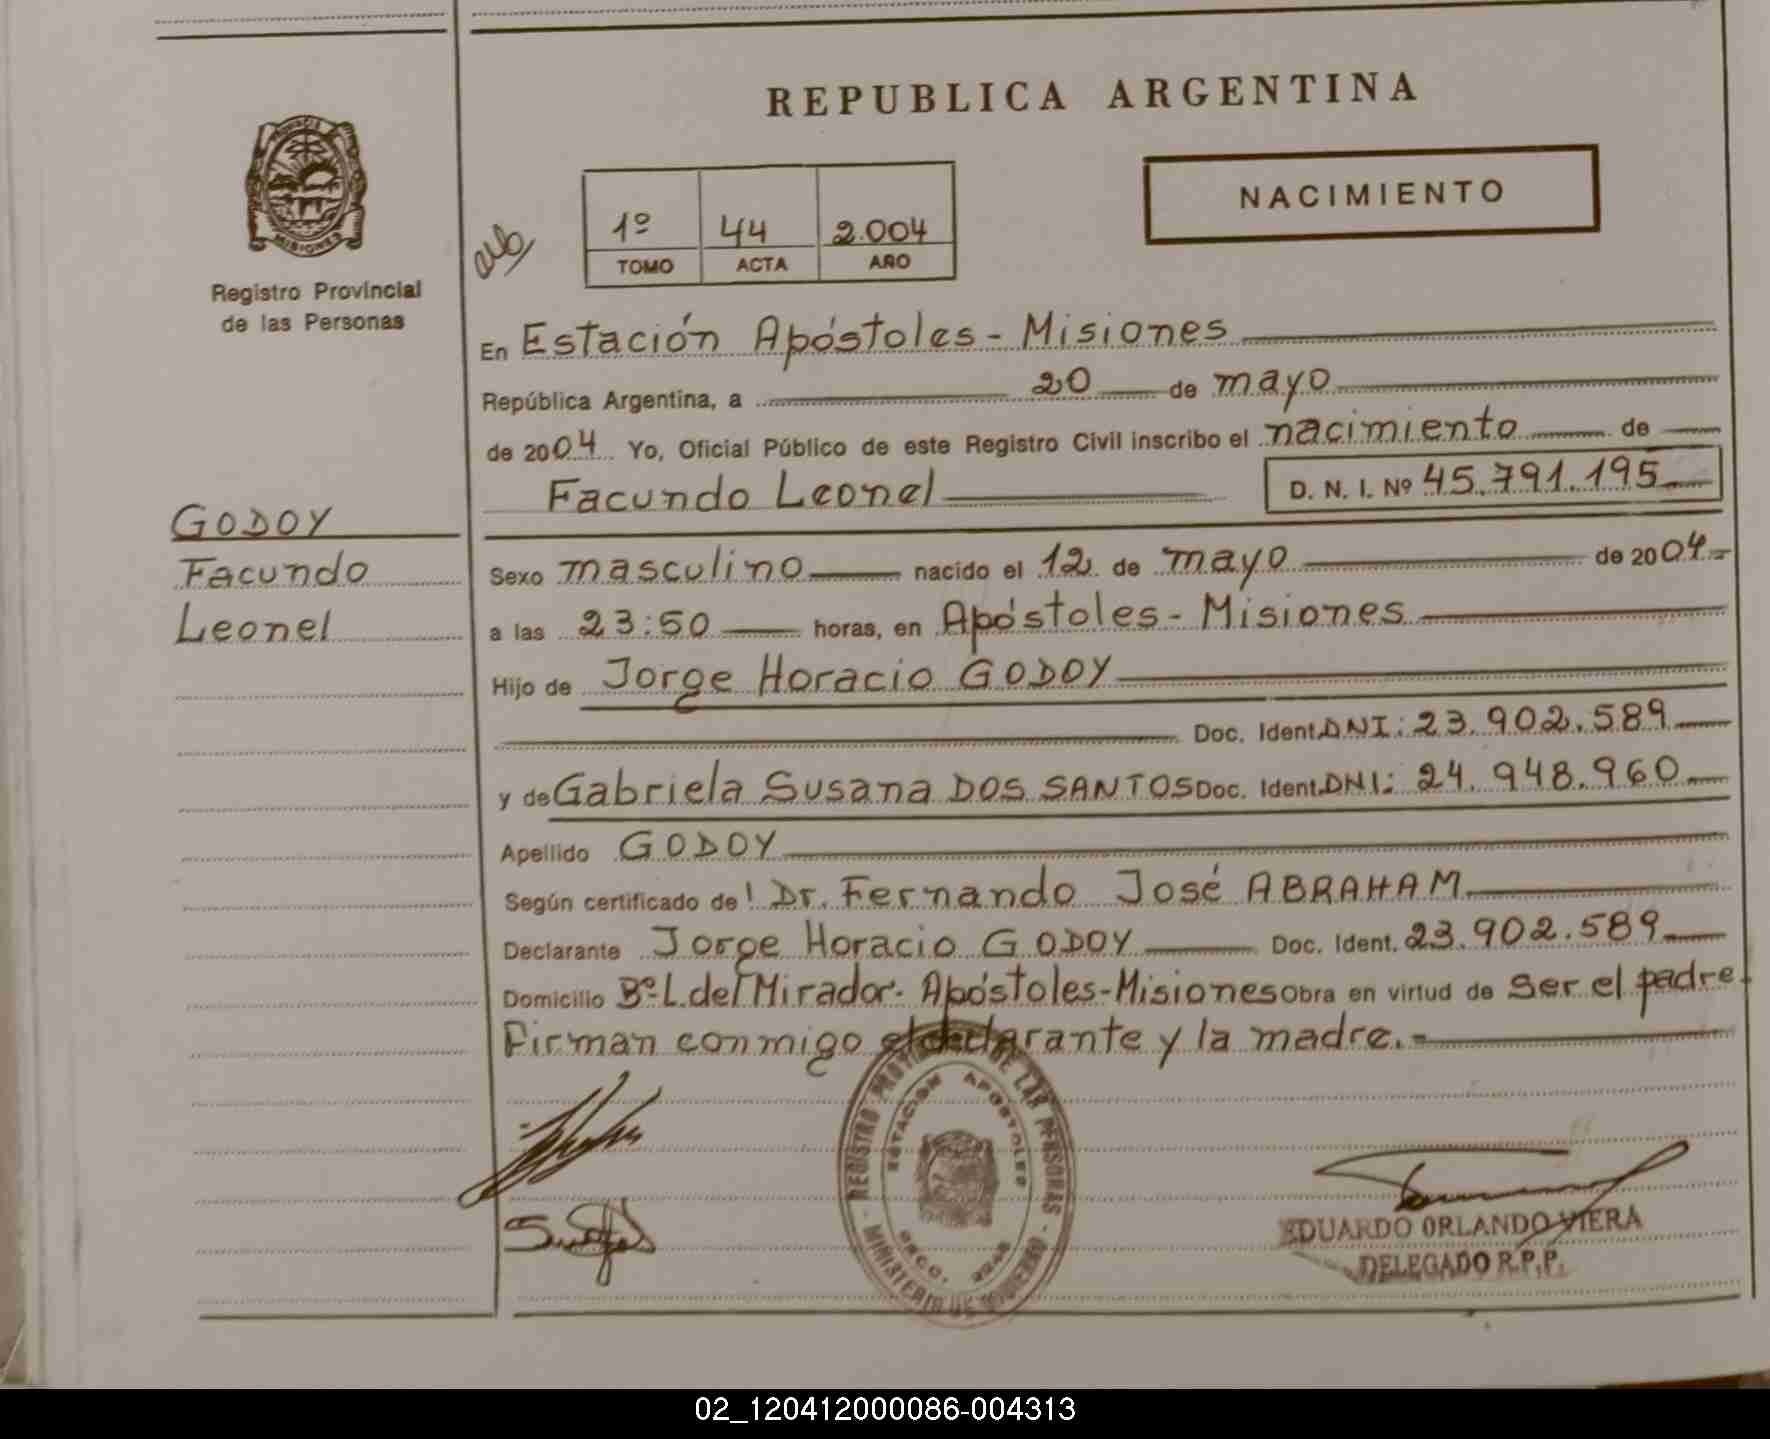 REPUBLICA ARGENTINA
NACIMIENTO
1º 44 2.004
TOMO ACTA AÑO
PROVINCIA
MISIONES
Registro Provincial
de las Personas
En Estación Apóstoles - Misiones
República Argentina, a 20 de mayo
de 2004 Yo, Oficial Público de este Registro Civil inscribo el nacimiento de
Facundo Leonel D. N. I. Nº 45.791.195
GODOY
Facundo
Leonel
Sexo masculino nacido el 12 de mayo de 2004.-
a las 23:50 horas, en Apóstoles - Misiones
Hijo de Jorge Horacio GODOY
Doc. Ident. DNI: 23.902.589
y de Gabriela Susana DOS SANTOS Doc. Ident. DNI: 24.948.960
Apellido GODOY
Según certificado de: Dr. Fernando José ABRAHAM
Declarante Jorge Horacio GODOY Doc. Ident. 23.902.589
Domicilio Bº L. del Mirador. Apóstoles-Misiones Obra en virtud de ser el padre.
Firman conmigo el declarante y la madre.-
REGISTRO PROVINCIAL DE LAS PERSONAS - MINISTERIO DE GOBIERNO -
ESTACION APOSTOLES
EDUARDO ORLANDO VIERA
DELEGADO R.P.P.
02_120412000086-004313